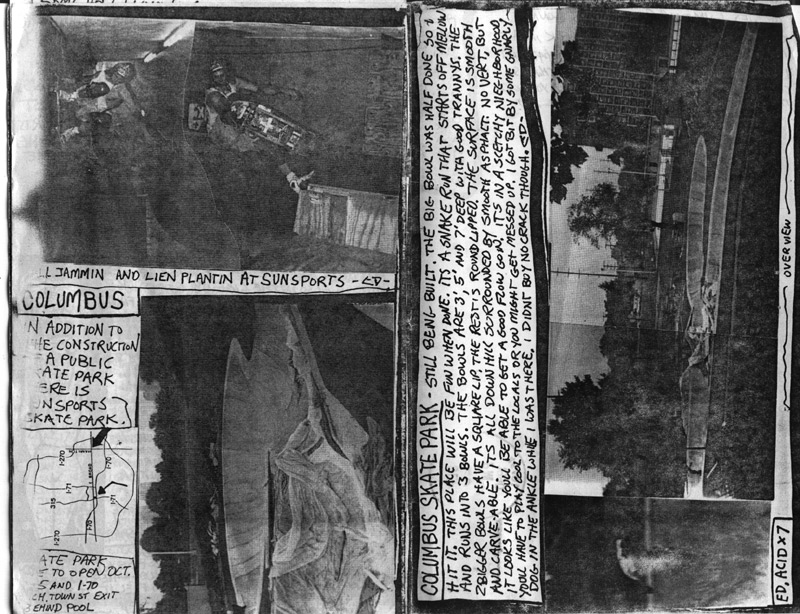 LL JAMMIN AND LIEN PLANTIN AT SUNSPORTS -ED-
COLUMBUS
N ADDITION TO
HE CONSTRUCTION
F A PUBLIC
KATE PARK
ERE IS
UNSPORTS
KATE PARK.
I-270
I-70
315
I-71
BROAD
I-71
I-270
I-70
ATE PARK
E TO OPEN OCT.
5 AND I-70
CH. TOWN ST EXIT
BEHIND POOL
COLUMBUS SKATE PARK - STILL BEING BUILT, THE BIG BOWL WAS HALF DONE SO I
HIT IT. THIS PLACE WILL BE FUN WHEN DONE. ITS A SNAKE RUN THAT STARTS OFF MELLOW
AND RUNS INTO 3 BOWLS. THE BOWLS ARE 3', 5' AND 7' DEEP WITH GOOD TRANNYS. THE
2 BIGGER BOWLS HAVE A SQUARE LIP, THE REST IS ROUND LIPPED. THE SURFACE IS SMOOTH
AND CARVE-ABLE. IT'S ALL DOWN HILL SURROUNDED BY SMOOTH ASPHALT. NO VERT, BUT
IT LOOKS LIKE YOU'LL BE ABLE TO GET A GOOD FLOW GOIN'. IT'S IN A SCETCHY NIEGHBORHOOD,
YOULL HAVE TO PLAY COOL TO THE LOCALS OR YOU MIGHT GET MESSED UP. I GOT BIT BY SOME GNARLY
DOG IN THE ANKLE WHILE I WAS THERE, I DIDNT BUY NO CRACK THOUGH. -ED-
OVERVIEW
ED, ACID X 7